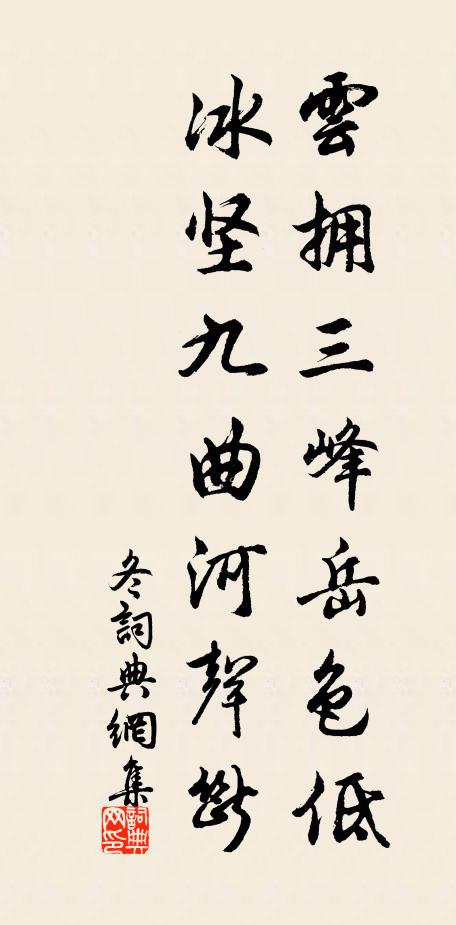 雲拥三峰岳色低
冰坚九曲河聲断
冬詞典網集
詞典网印